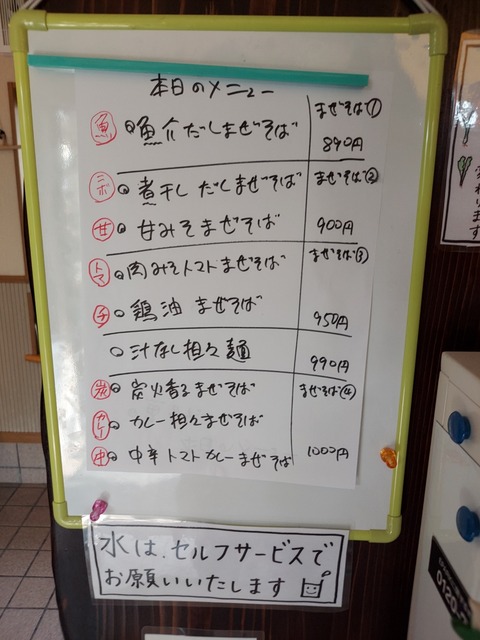 本日のメニュー
まぜそば①
魚 ○魚介だしまぜそば
890円
ニボ ○煮干しだしまぜそば まぜそば②
甘 ○甘みそまぜそば 900円
まぜそば③
トマ ○肉みそトマトまぜそば
チ ○鶏油まぜそば 950円
○汁なし担々麺 990円
炭 ○炭火香るまぜそば まぜそば④
カレー ○カレー担々まぜそば
中 ○中辛トマトカレーまぜそば 1000円
水は、セルフサービスで
お願いいたします
0120